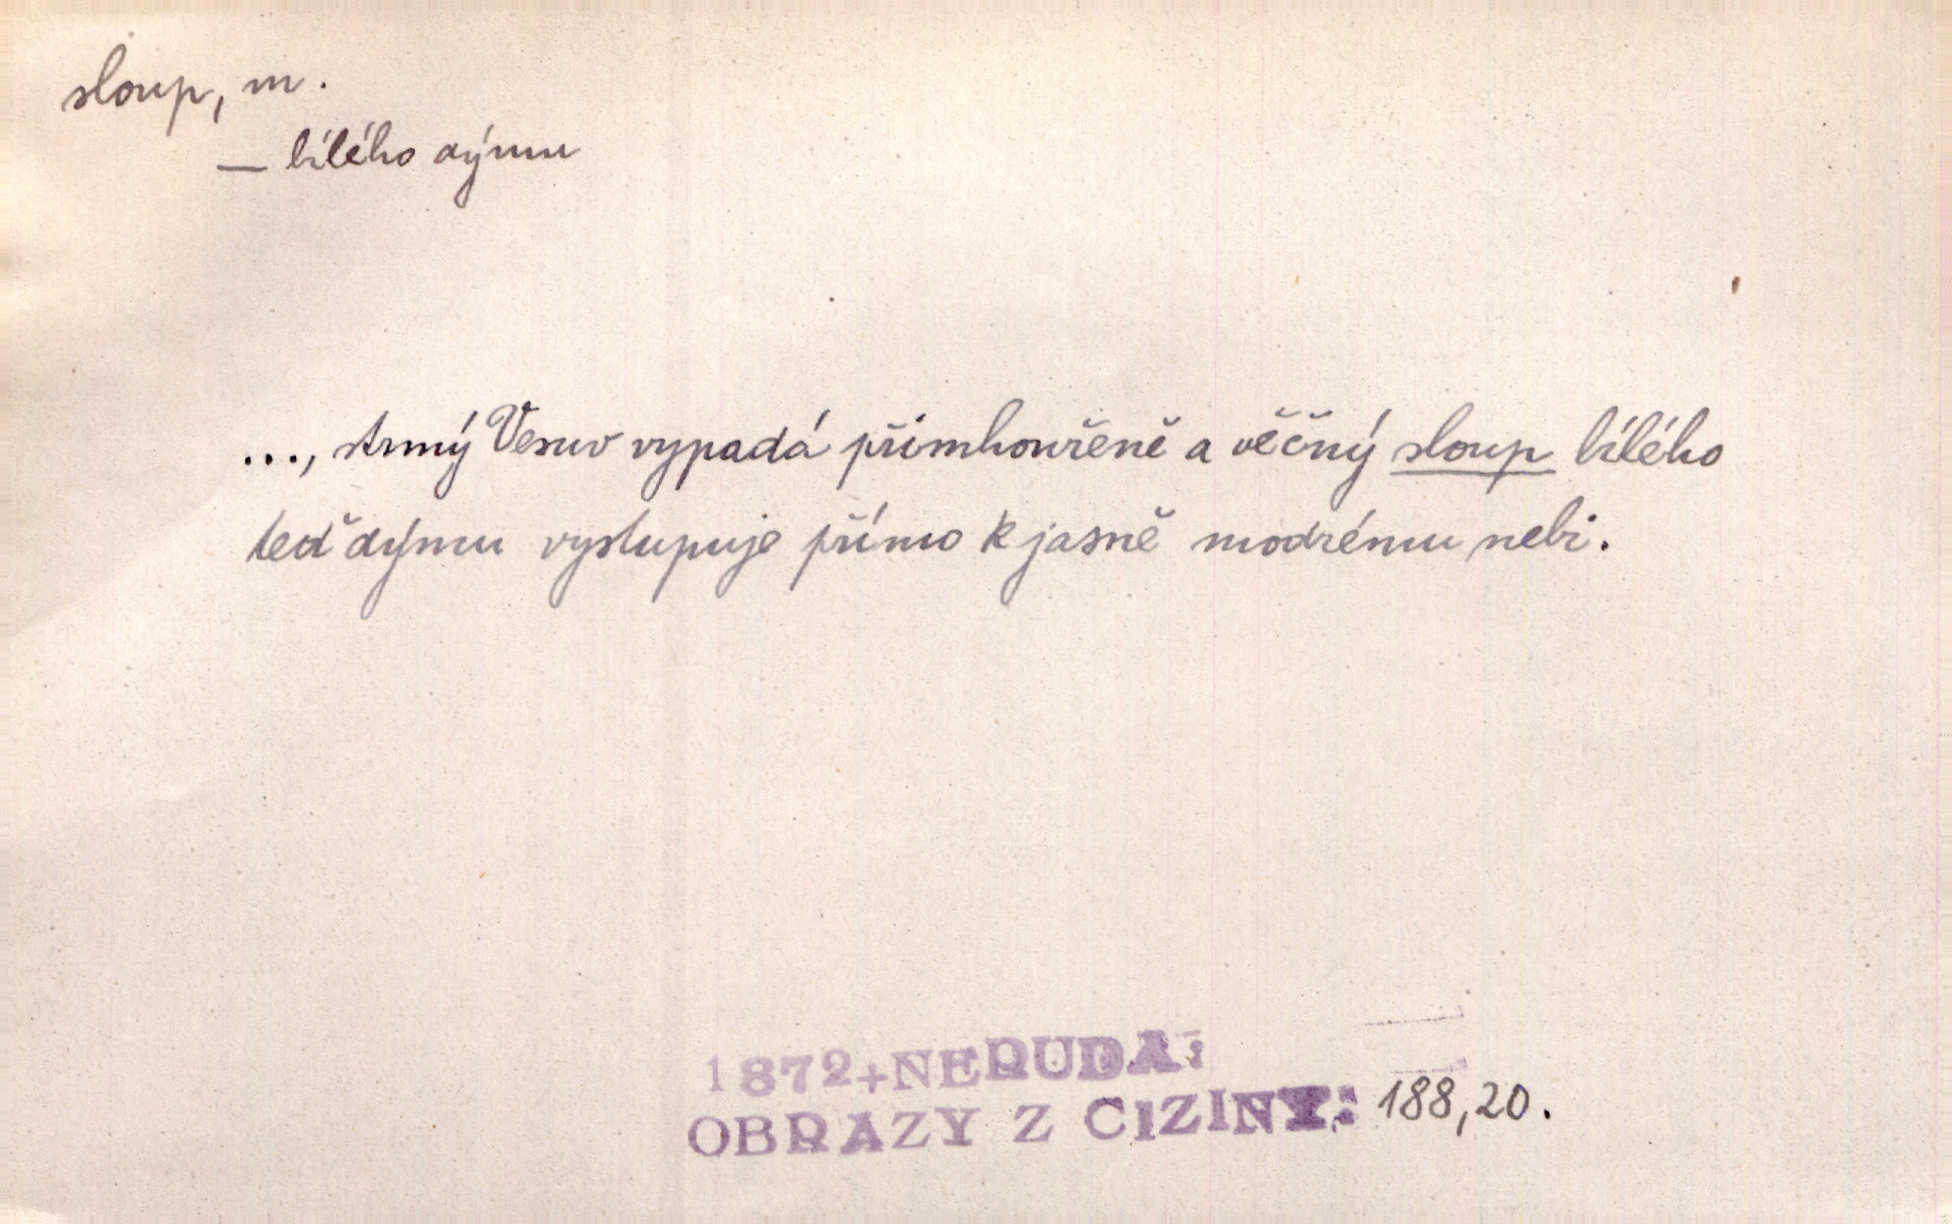 sloup, m.
— bílého dýmu
..., strmý Vesuv vypadá přimhouřeně a věčný sloup bílého
teď dýmu vystupuje přímo k jasně modrému nebi.
1872+NERUDA:
OBRAZY Z CIZINY: 188,20.